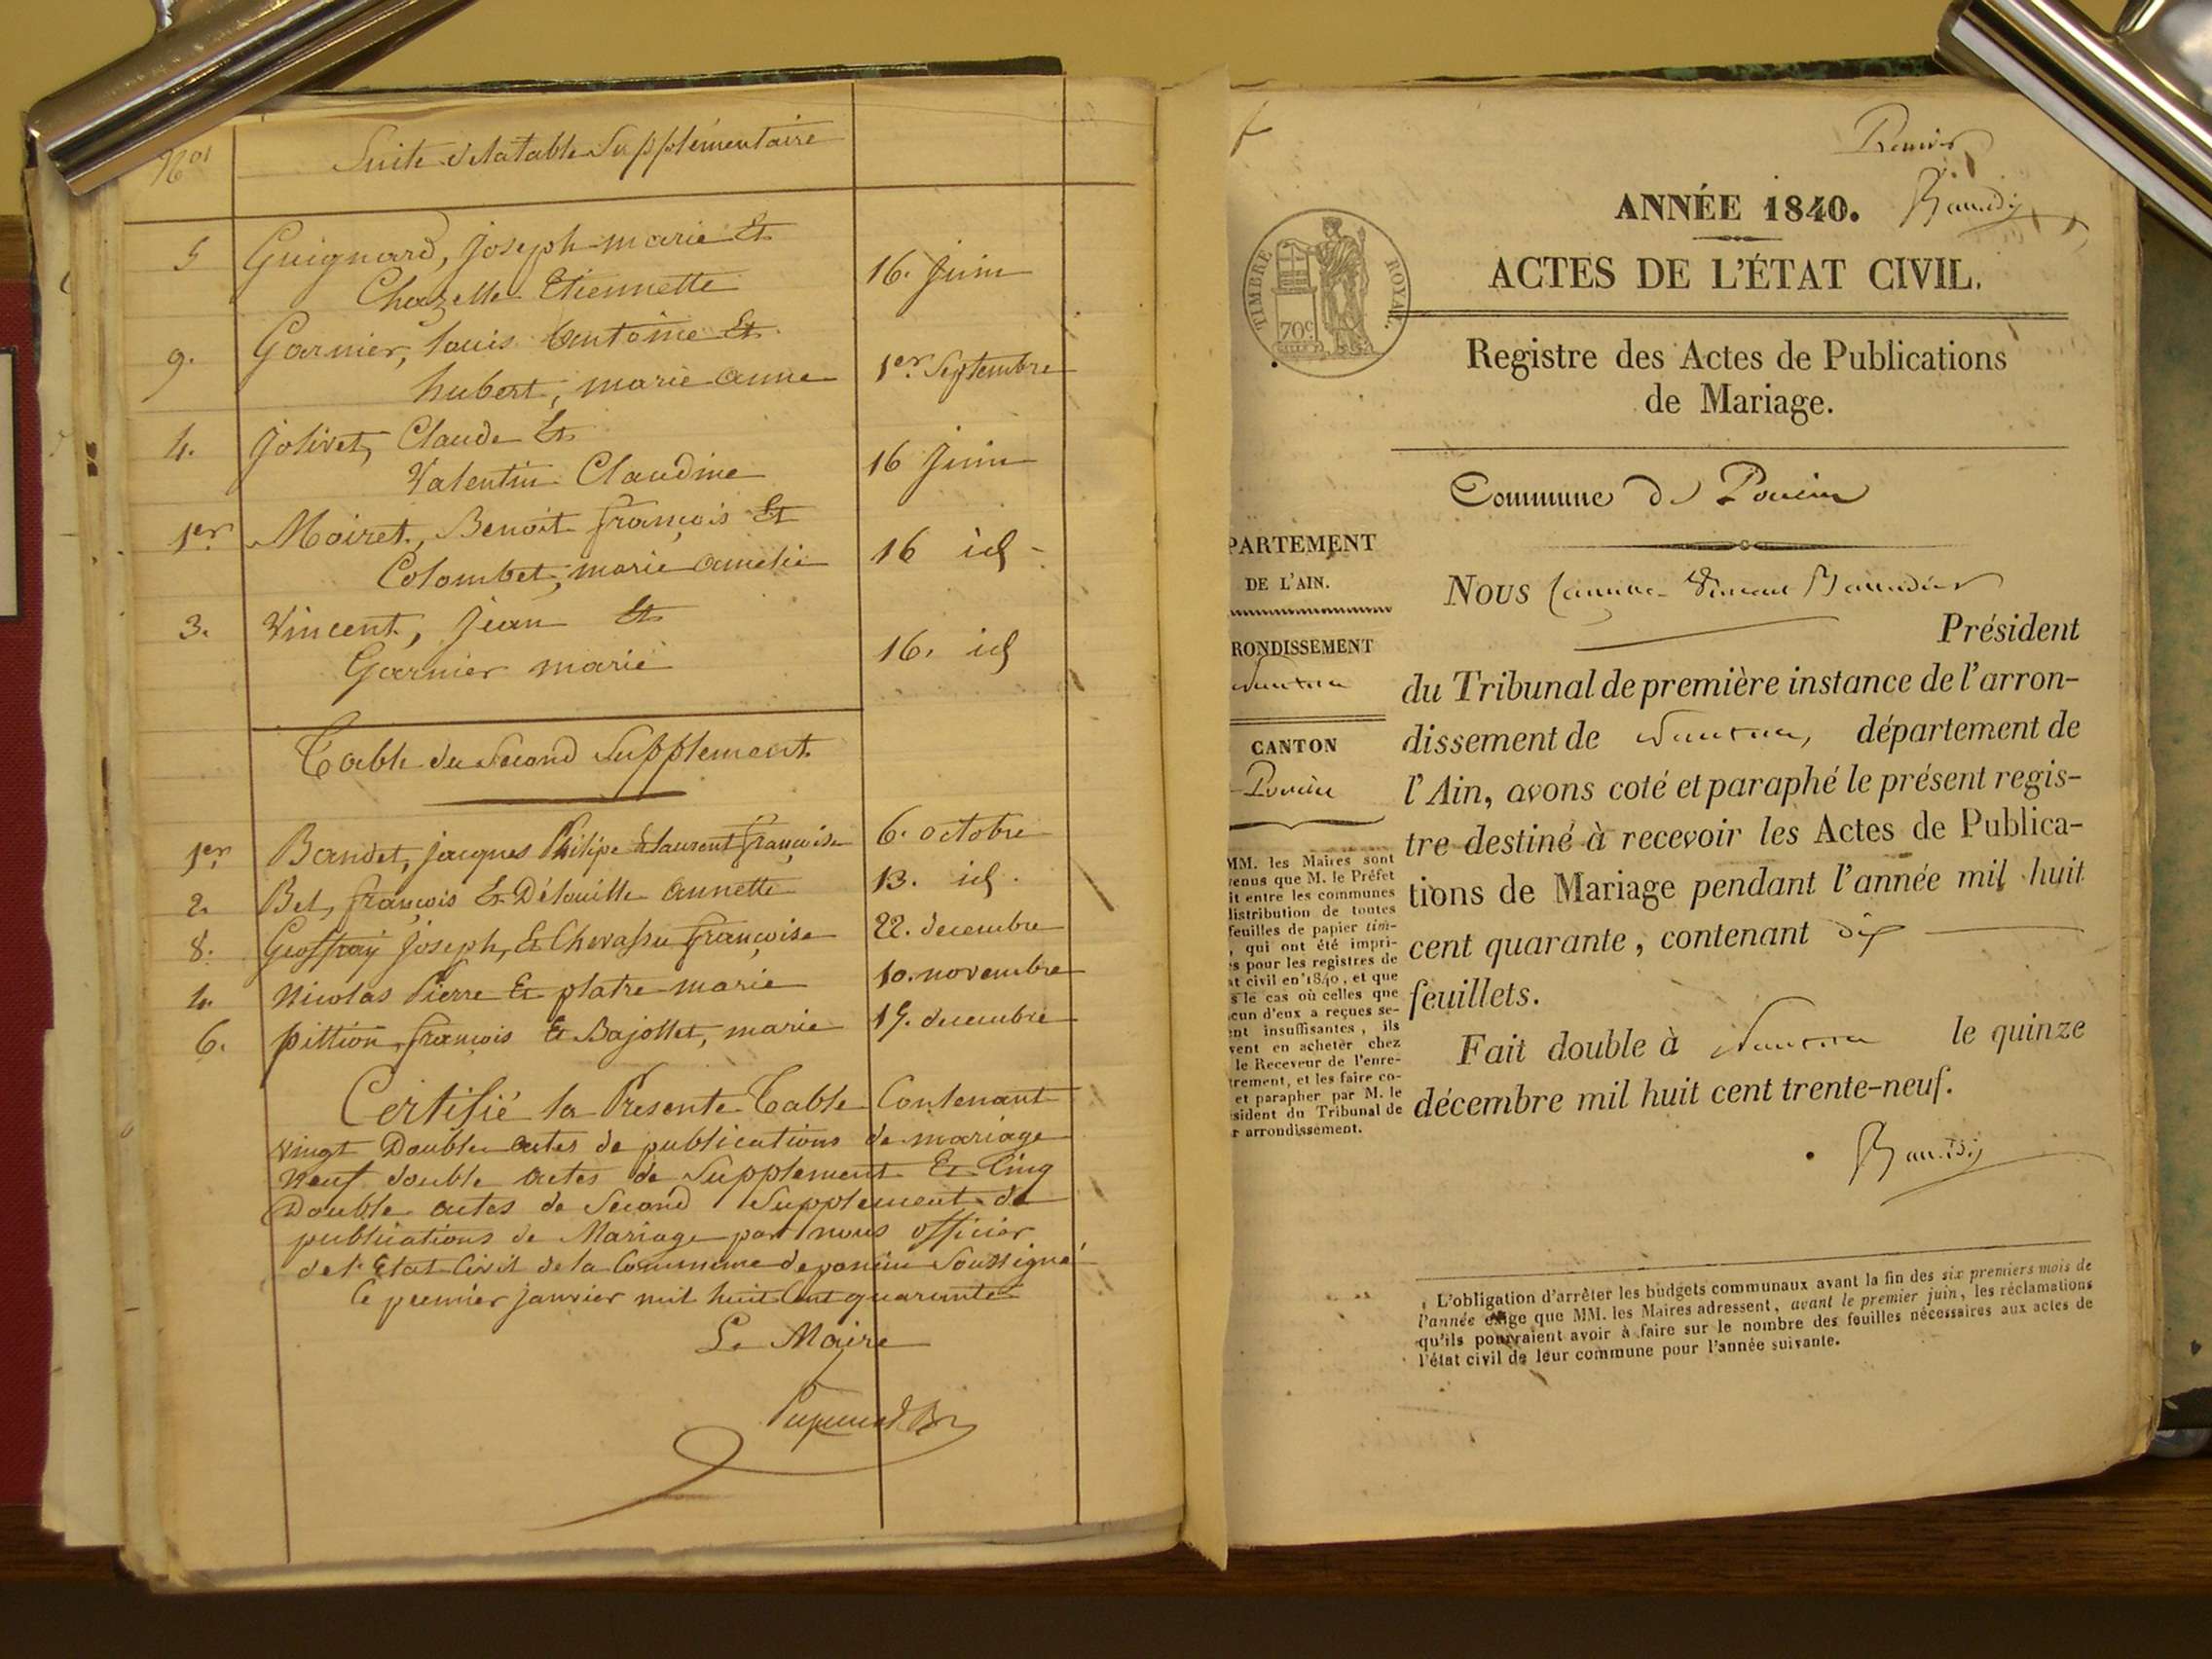 Nos
Suite de la table Supplémentaire
5 Guignard, Joseph marie Et
Chazelle Etiennette
16. Juin
9. Garnier, louis antoine Et
hubert, marie anne
1er Septembre
4. Jolivet, Claude Et
Valentin Claudine
16 Juin
1er Moiret, Benoit françois Et
Colombet, marie amelie
16 id
3. Vincent, Jean Et
Garnier marie
16. id
Table du Second Supplement
1er Bandet, jacques Philipe & laurent françoise 6. octobre
2. Bel, françois Et Délouille annette 13. id.
8. Geoffray Joseph, Et Chevassu françoise 22. decembre
4. Nicolas Pierre Et platre marie 10. novembre
6. pittion françois Et Bajollet, marie 15. decembre
Certifié la Presente Table Contenant
vingt Double actes de publications de mariage
neuf double actes de Supplement Et Cinq
Double actes de Second Supplement de
publications de Mariage par nous officier
de l'Etat Civil de la Commune de poncin Soussigné
le premier janvier mil huit Cent quarante
Le Maire
Premier
ANNÉE 1840.
ACTES DE L'ÉTAT CIVIL.
TIMBRE ROYAL.
70c
Registre des Actes de Publications
de Mariage.
Commune de Poncin
PARTEMENT
DE L'AIN.
RONDISSEMENT
Nantua
CANTON
Poncin
MM. les Maires sont
venus que M. le Préfet
it entre les communes
distribution de toutes
feuilles de papier tim-
, qui ont été impri-
s pour les registres de
at civil en 1840, et que
s le cas où celles que
cun d'eux a reçues se-
nt insuffisantes, ils
vent en acheter chez
le Receveur de l'enre-
trement, et les faire co-
et parapher par M. le
sident du Tribunal de
r arrondissement.
Nous
Président
du Tribunal de première instance de l'arron-
dissement de Nantua, département de
l'Ain, avons coté et paraphé le présent regis-
tre destiné à recevoir les Actes de Publica-
tions de Mariage pendant l'année mil huit
cent quarante, contenant dix
feuillets.
Fait double à Nantua le quinze
décembre mil huit cent trente-neuf.
L'obligation d'arrêter les budgets communaux avant la fin des six premiers mois de
l'année exige que MM. les Maires adressent, avant le premier juin, les réclamations
qu'ils pourraient avoir à faire sur le nombre des feuilles nécessaires aux actes de
l'état civil de leur commune pour l'année suivante.